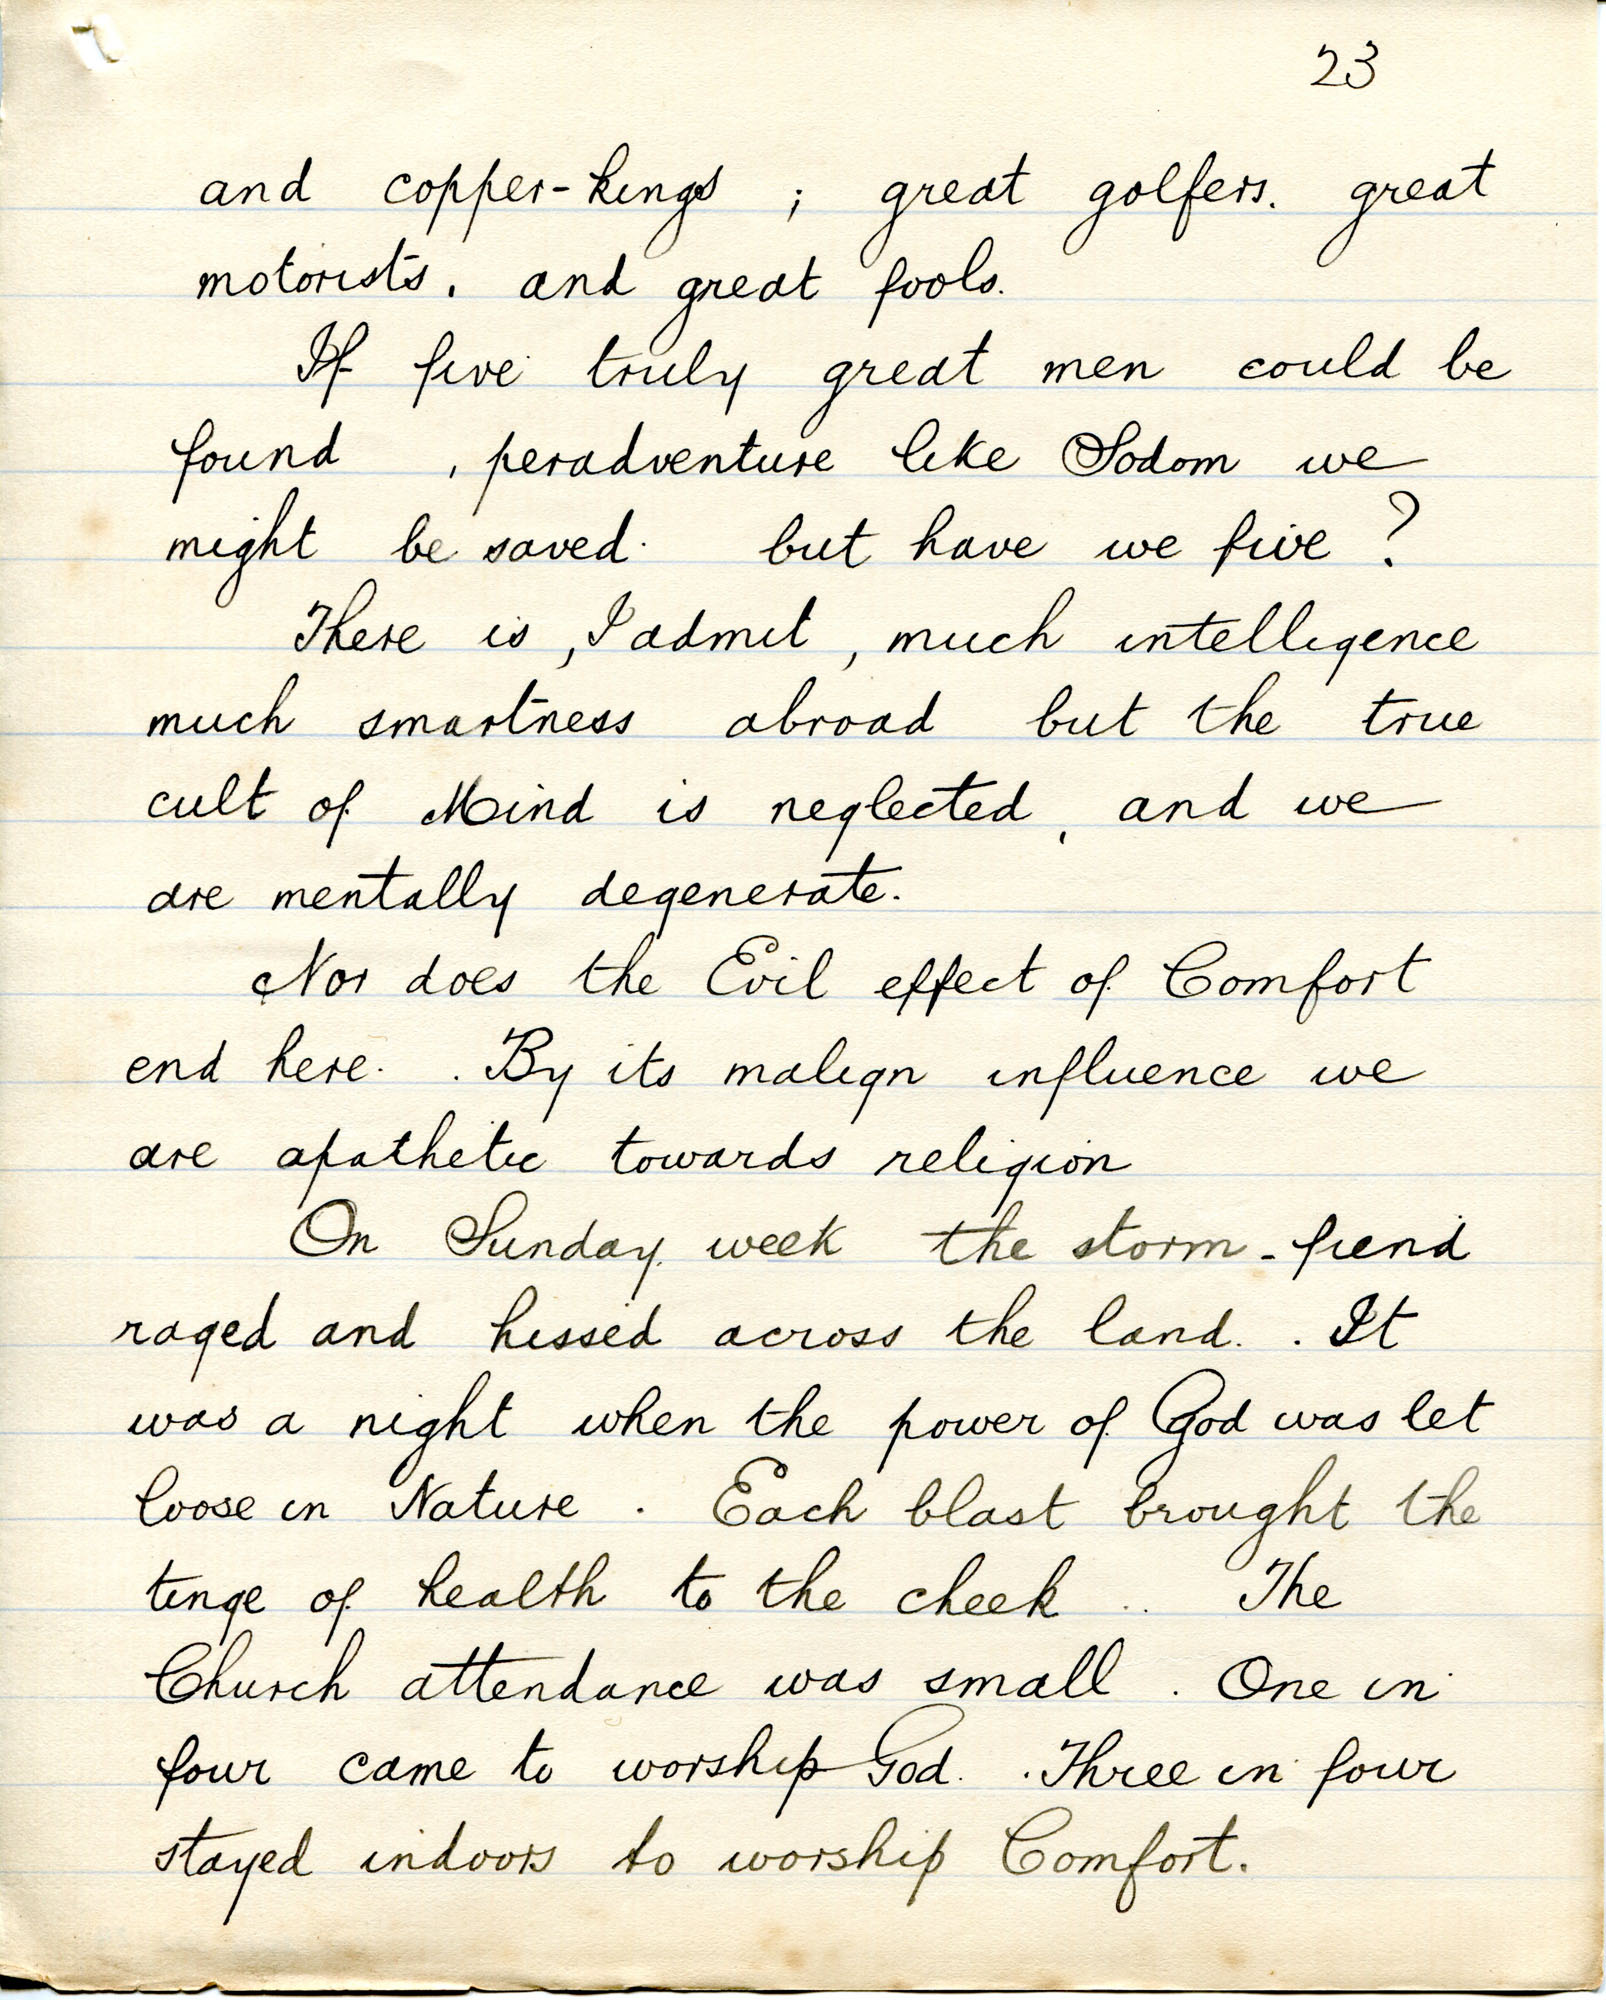 23
and copper-kings ; great golfers. great
motorists. and great fools.
If five truly great men could be
found , peradventure like Sodom we
might be saved. but have we five ?
There is , I admit , much intelligence
much smartness abroad but the true
cult of Mind is neglected , and we
are mentally degenerate.
Nor does the Evil effect of Comfort
end here. . By its malign influence we
are apathetic towards religion
On Sunday week the storm-fiend
raged and hissed across the land. . It
was a night when the power of God was let
loose in Nature . Each blast brought the
tinge of health to the cheek .. The
Church attendance was small . One in
four came to worship God. . Three in four
stayed indoors to worship Comfort.